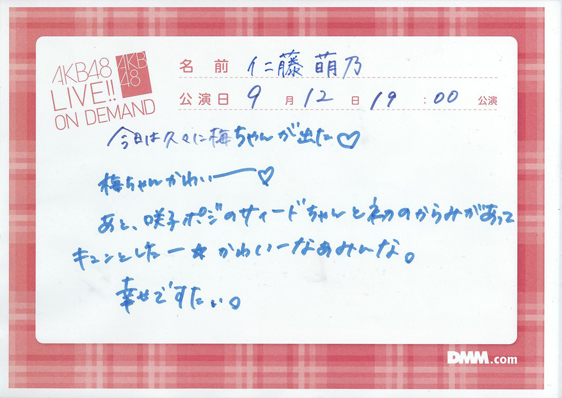 AKB48
LIVE!!
ON DEMAND
AKB
48
名前 仁藤萌乃
公演日 9月12日 19:00 公演
今日は久々に梅ちゃんが出た♡
梅ちゃんかわいー♡
あと、咲子ポジのサイードちゃんと初のからみがあって
キュンとしたー★かわいーなあみんな。
幸せですたい。
DMM.com